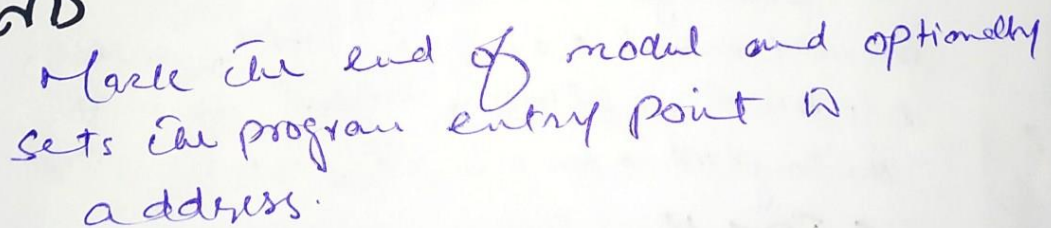 ND
Mark the end of modul and optionally
sets the program entry point to
address.